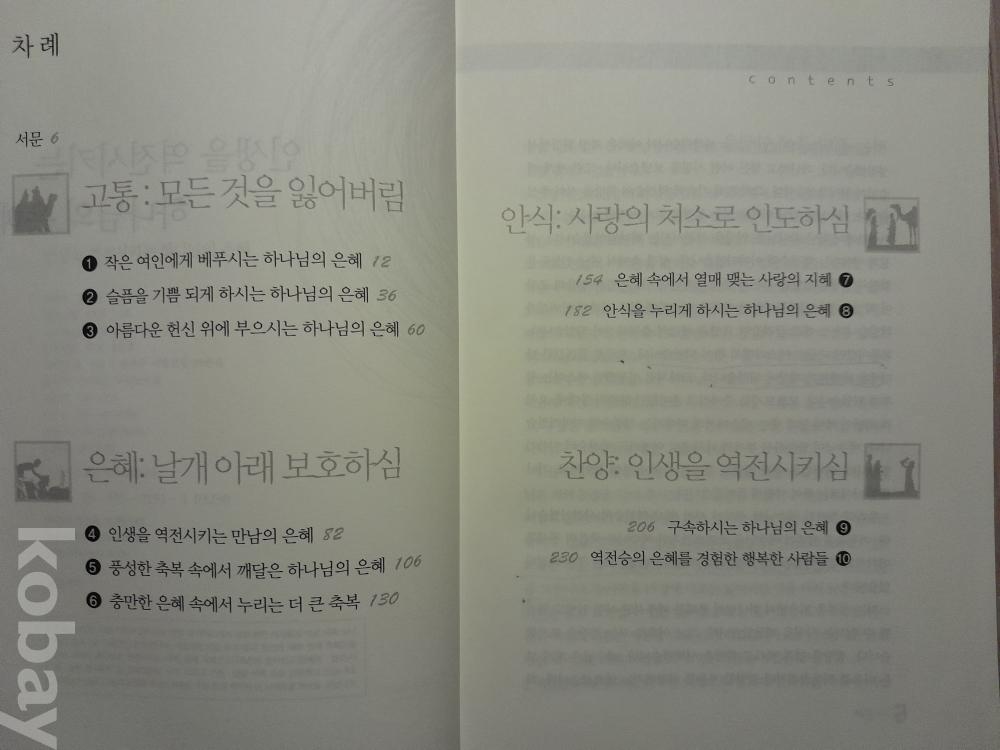 차례
서문 6
고통 : 모든 것을 잃어버림
❶ 작은 여인에게 베푸시는 하나님의 은혜 12
❷ 슬픔을 기쁨 되게 하시는 하나님의 은혜 36
❸ 아름다운 헌신 위에 부으시는 하나님의 은혜 60
은혜: 날개 아래 보호하심
❹ 인생을 역전시키는 만남의 은혜 82
❺ 풍성한 축복 속에서 깨달은 하나님의 은혜 106
❻ 충만한 은혜 속에서 누리는 더 큰 축복 130
contents
안식: 사랑의 처소로 인도하심
154 은혜 속에서 열매 맺는 사랑의 지혜 ❼
182 안식을 누리게 하시는 하나님의 은혜 ❽
찬양: 인생을 역전시키심
206 구속하시는 하나님의 은혜 ❾
230 역전승의 은혜를 경험한 행복한 사람들 ❿
kobay